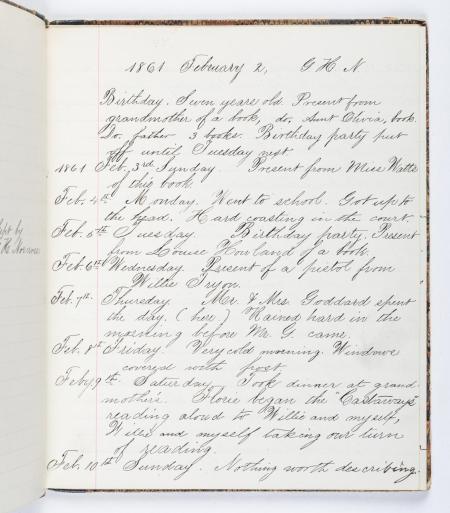 1861 February 2, G H N.
Birthday. Seven years old. Present from
grandmother of a book, do. Aunt Olivia, book.
Do. father 3 books. Birthday party put
off until Tuesday next.
1861 Feb. 3rd Sunday. Present from Miss Watts
of this book.
Feb. 4th Monday. Went to school. Got up to
the head. Hard coasting in the court.
Feb. 5th Tuesday Birthday party. Present
from Louise Howland of a book.
Feb. 6th Wednesday. Present of a pistol from
Willie Tryon.
Feb. 7th. Thursday. Mr. & Mrs. Goddard spent
the day. (here.) Rained hard in the
morning before Mr. G. came.
Feb. 8th Friday. Very cold morning. Windows
covered with frost.
Feby. 9th. Saturday. Took dinner at grand-
mother's. Florie began the "Castaways"
reading aloud to Willie and myself,
Willie and myself taking our turn
of reading.
Feb. 10th Sunday. Nothing worth describing.
kept by